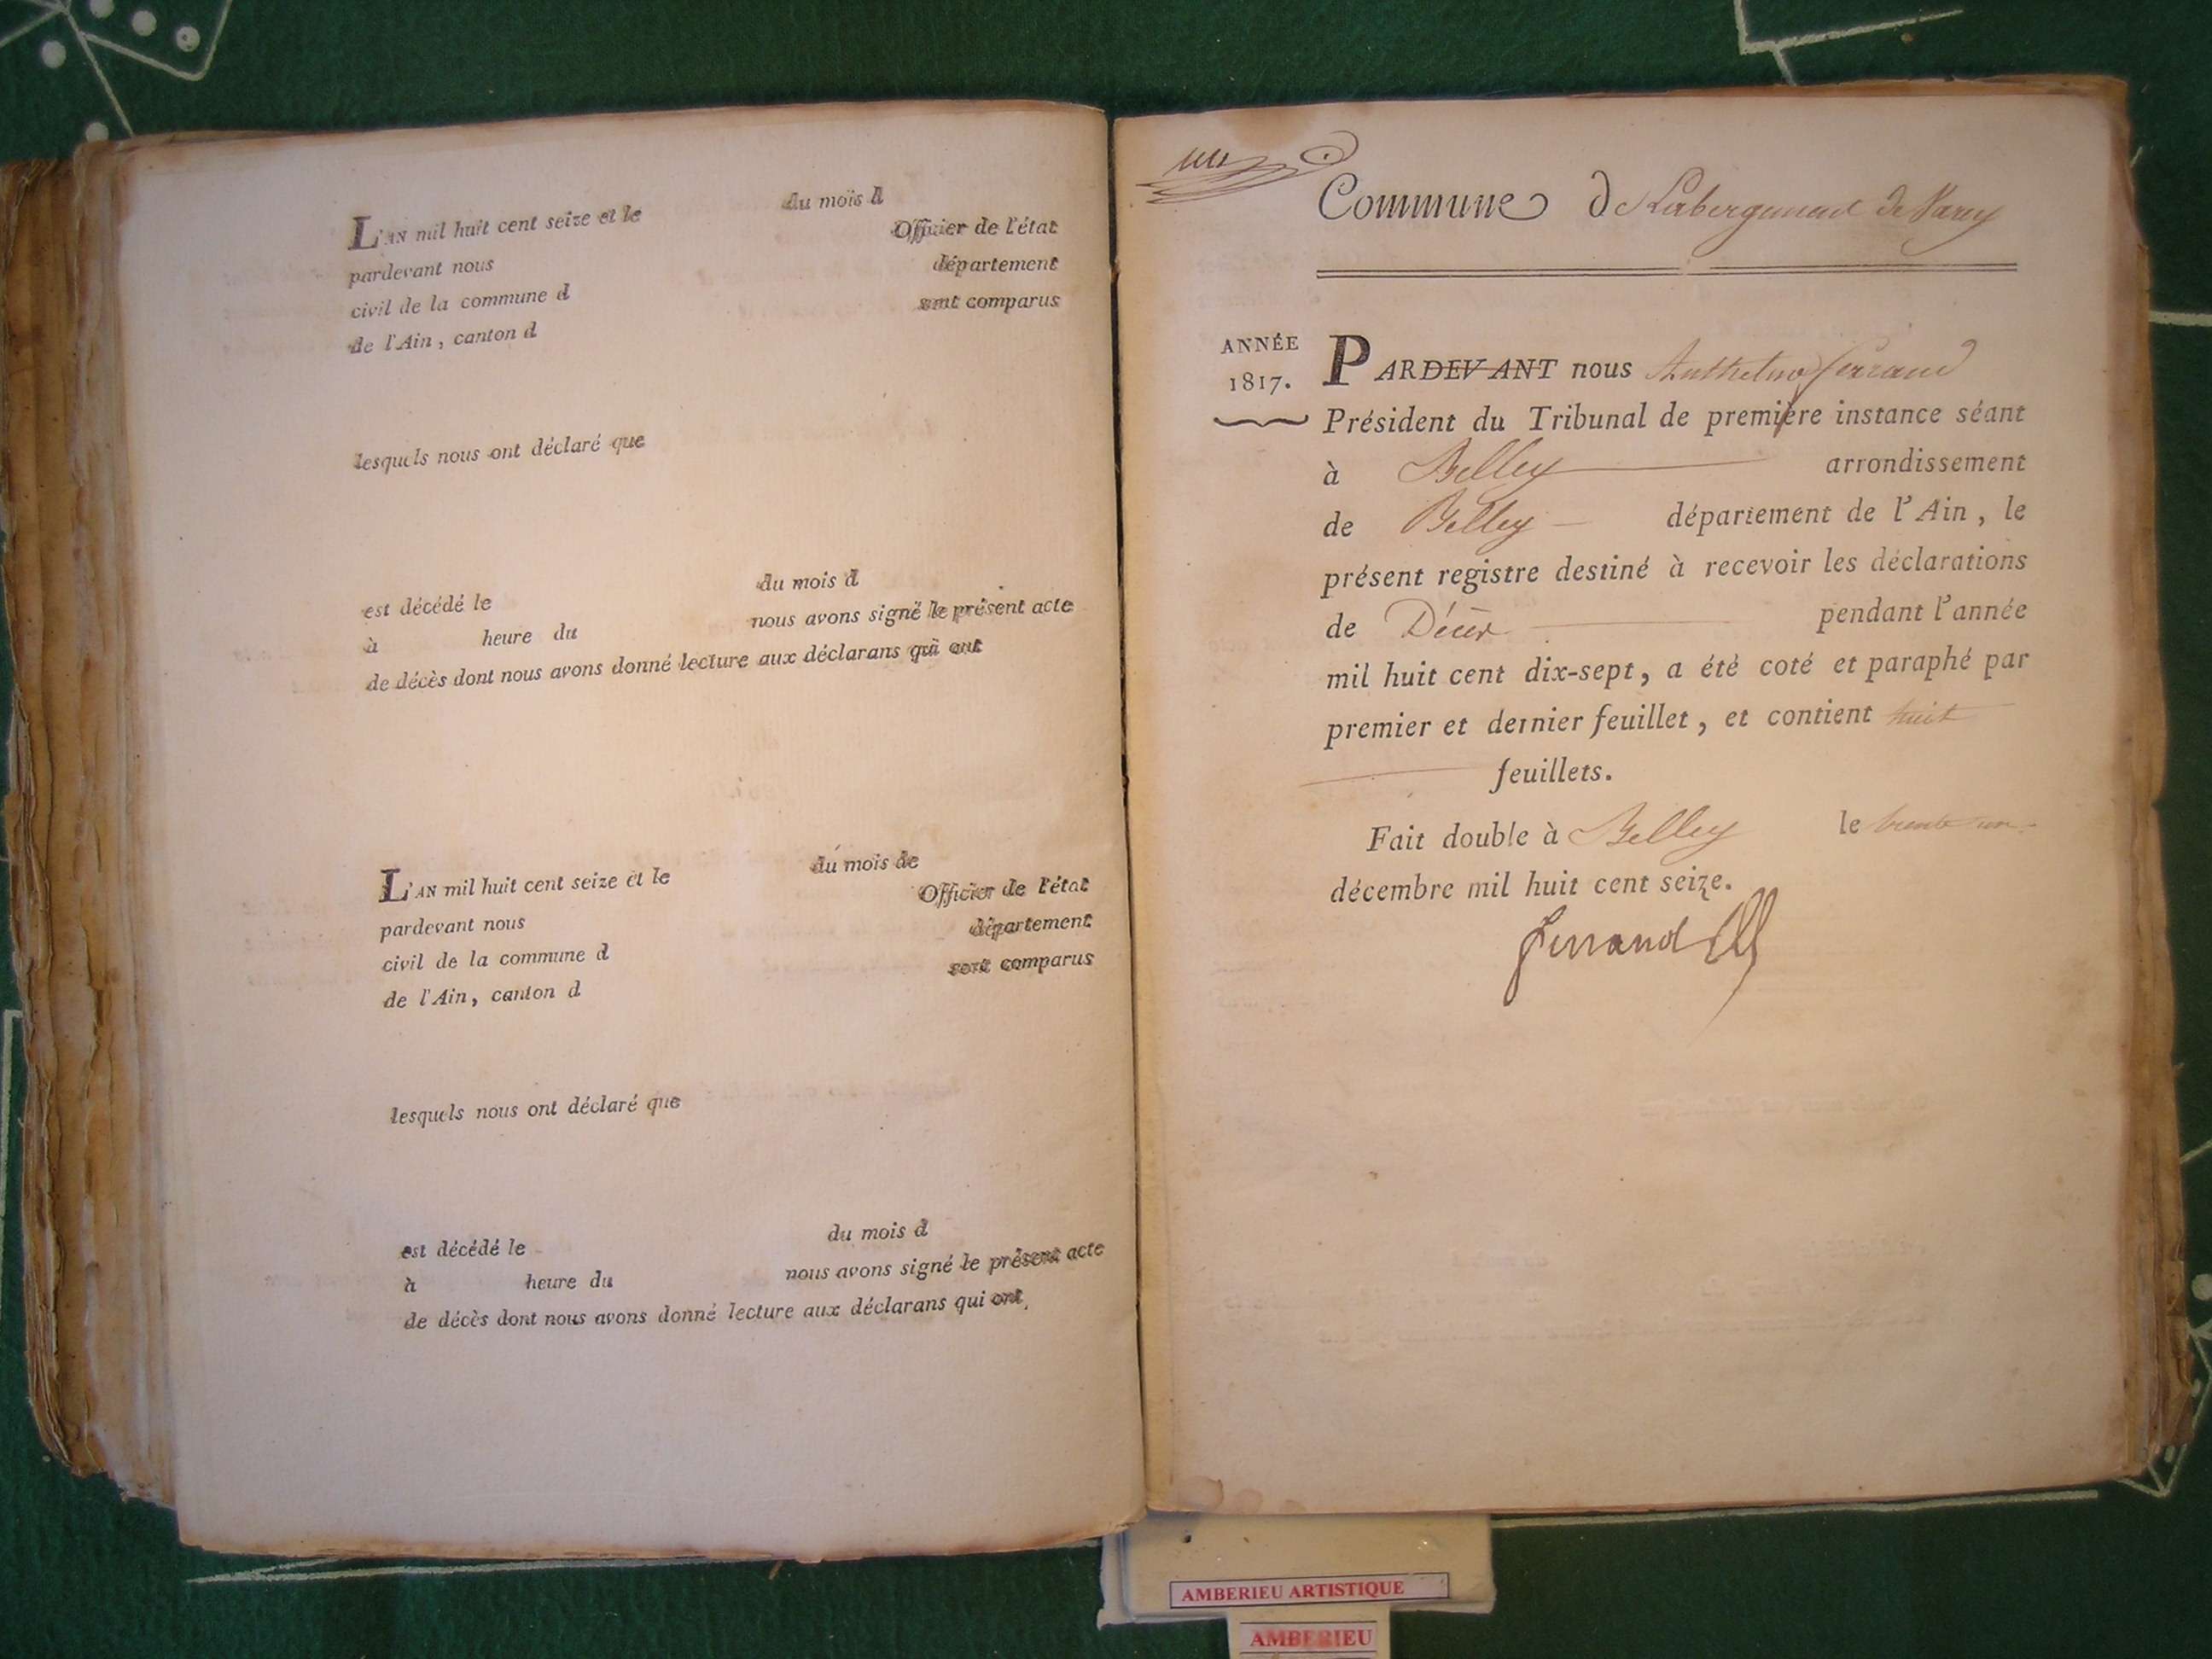 L'AN mil huit cent seize et le du mois d
pardevant nous Officier de l'état
civil de la commune d département
de l'Ain, canton d sont comparus
lesquels nous ont déclaré que
est décédé le du mois d
à heure du nous avons signé le présent acte
de décès dont nous avons donné lecture aux déclarans qui ont
L'AN mil huit cent seize et le du mois de
pardevant nous Officier de l'état
civil de la commune d département
de l'Ain, canton d sont comparus
lesquels nous ont déclaré que
est décédé le du mois d
à heure du nous avons signé le présent acte
de décès dont nous avons donné lecture aux déclarans qui ont
un
Commune de Varey
ANNÉE
1817.
PARDEVANT nous Anthelme ferrand
Président du Tribunal de première instance séant
à Belley arrondissement
de Belley département de l'Ain, le
présent registre destiné à recevoir les déclarations
de Décès pendant l'année
mil huit cent dix-sept, a été coté et paraphé par
premier et dernier feuillet, et contient huit
feuillets.
Fait double à Belley le trente un
décembre mil huit cent seize.
ferrand
AMBERIEU ARTISTIQUE
AMBERIEU